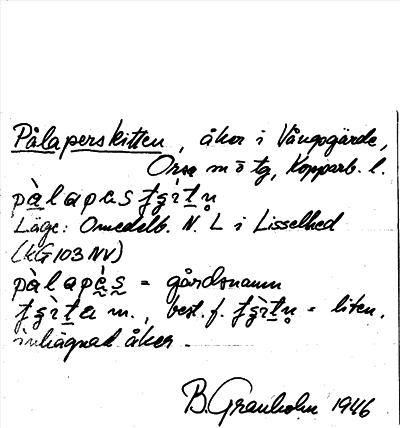 Pålaperskitten, åker i Vångsgärde,
Orsa m o tg, Kopparb. l.
Läge: Omedelb. N. L i Lisselhed
(kG 103 NV)
= gårdsnamn
m., best. f. = liten,
inhägnad åker.
B. Granholm 1946